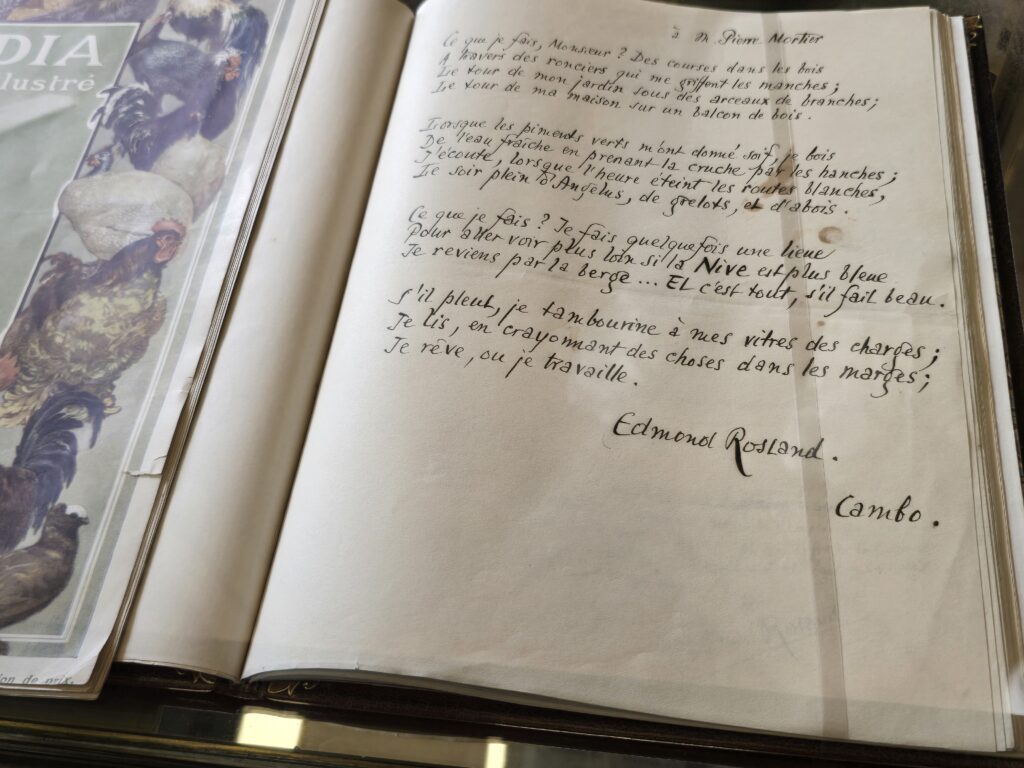 DIA
llustré
ion de prix.
à M. Pierre Mortier
Ce que je fais, Monsieur ? Des courses dans les bois
A travers des ronciers qui me griffent les manches ;
Le tour de mon jardin sous des arceaux de branches ;
Le tour de ma maison sur un balcon de bois .
Lorsque les piments verts m'ont donné soif, je bois
De l'eau fraîche en prenant la cruche par les hanches ;
J'écoute, lorsque l'heure éteint les routes blanches,
Le soir plein d'Angélus, de grelots, et d'abois .
Ce que je fais ? Je fais quelquefois une lieue
Pour aller voir plus loin si la Nive est plus bleue
Je reviens par la berge ... Et c'est tout, s'il fait beau.
S'il pleut, je tambourine à mes vitres des charges ;
Je lis, en crayonnant des choses dans les marges ;
Je rêve, ou je travaille .
Edmond Rostand .
Cambo .